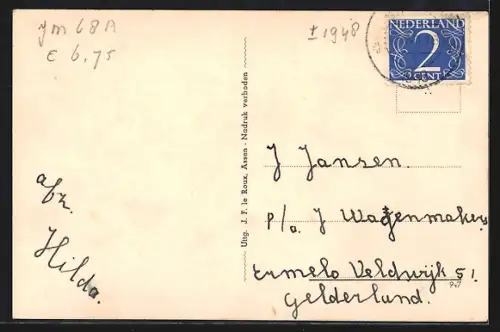 ym 68A
€ 6.75
± 1948
NEDERLAND
2
CENT
Uitg. J. F. le Roux, Assen - Nadruk verboden
afz.
Hilda.
J Jansen.
p/a J Wagenmaker
Ermelo Veldwijk 51
Gelderland.